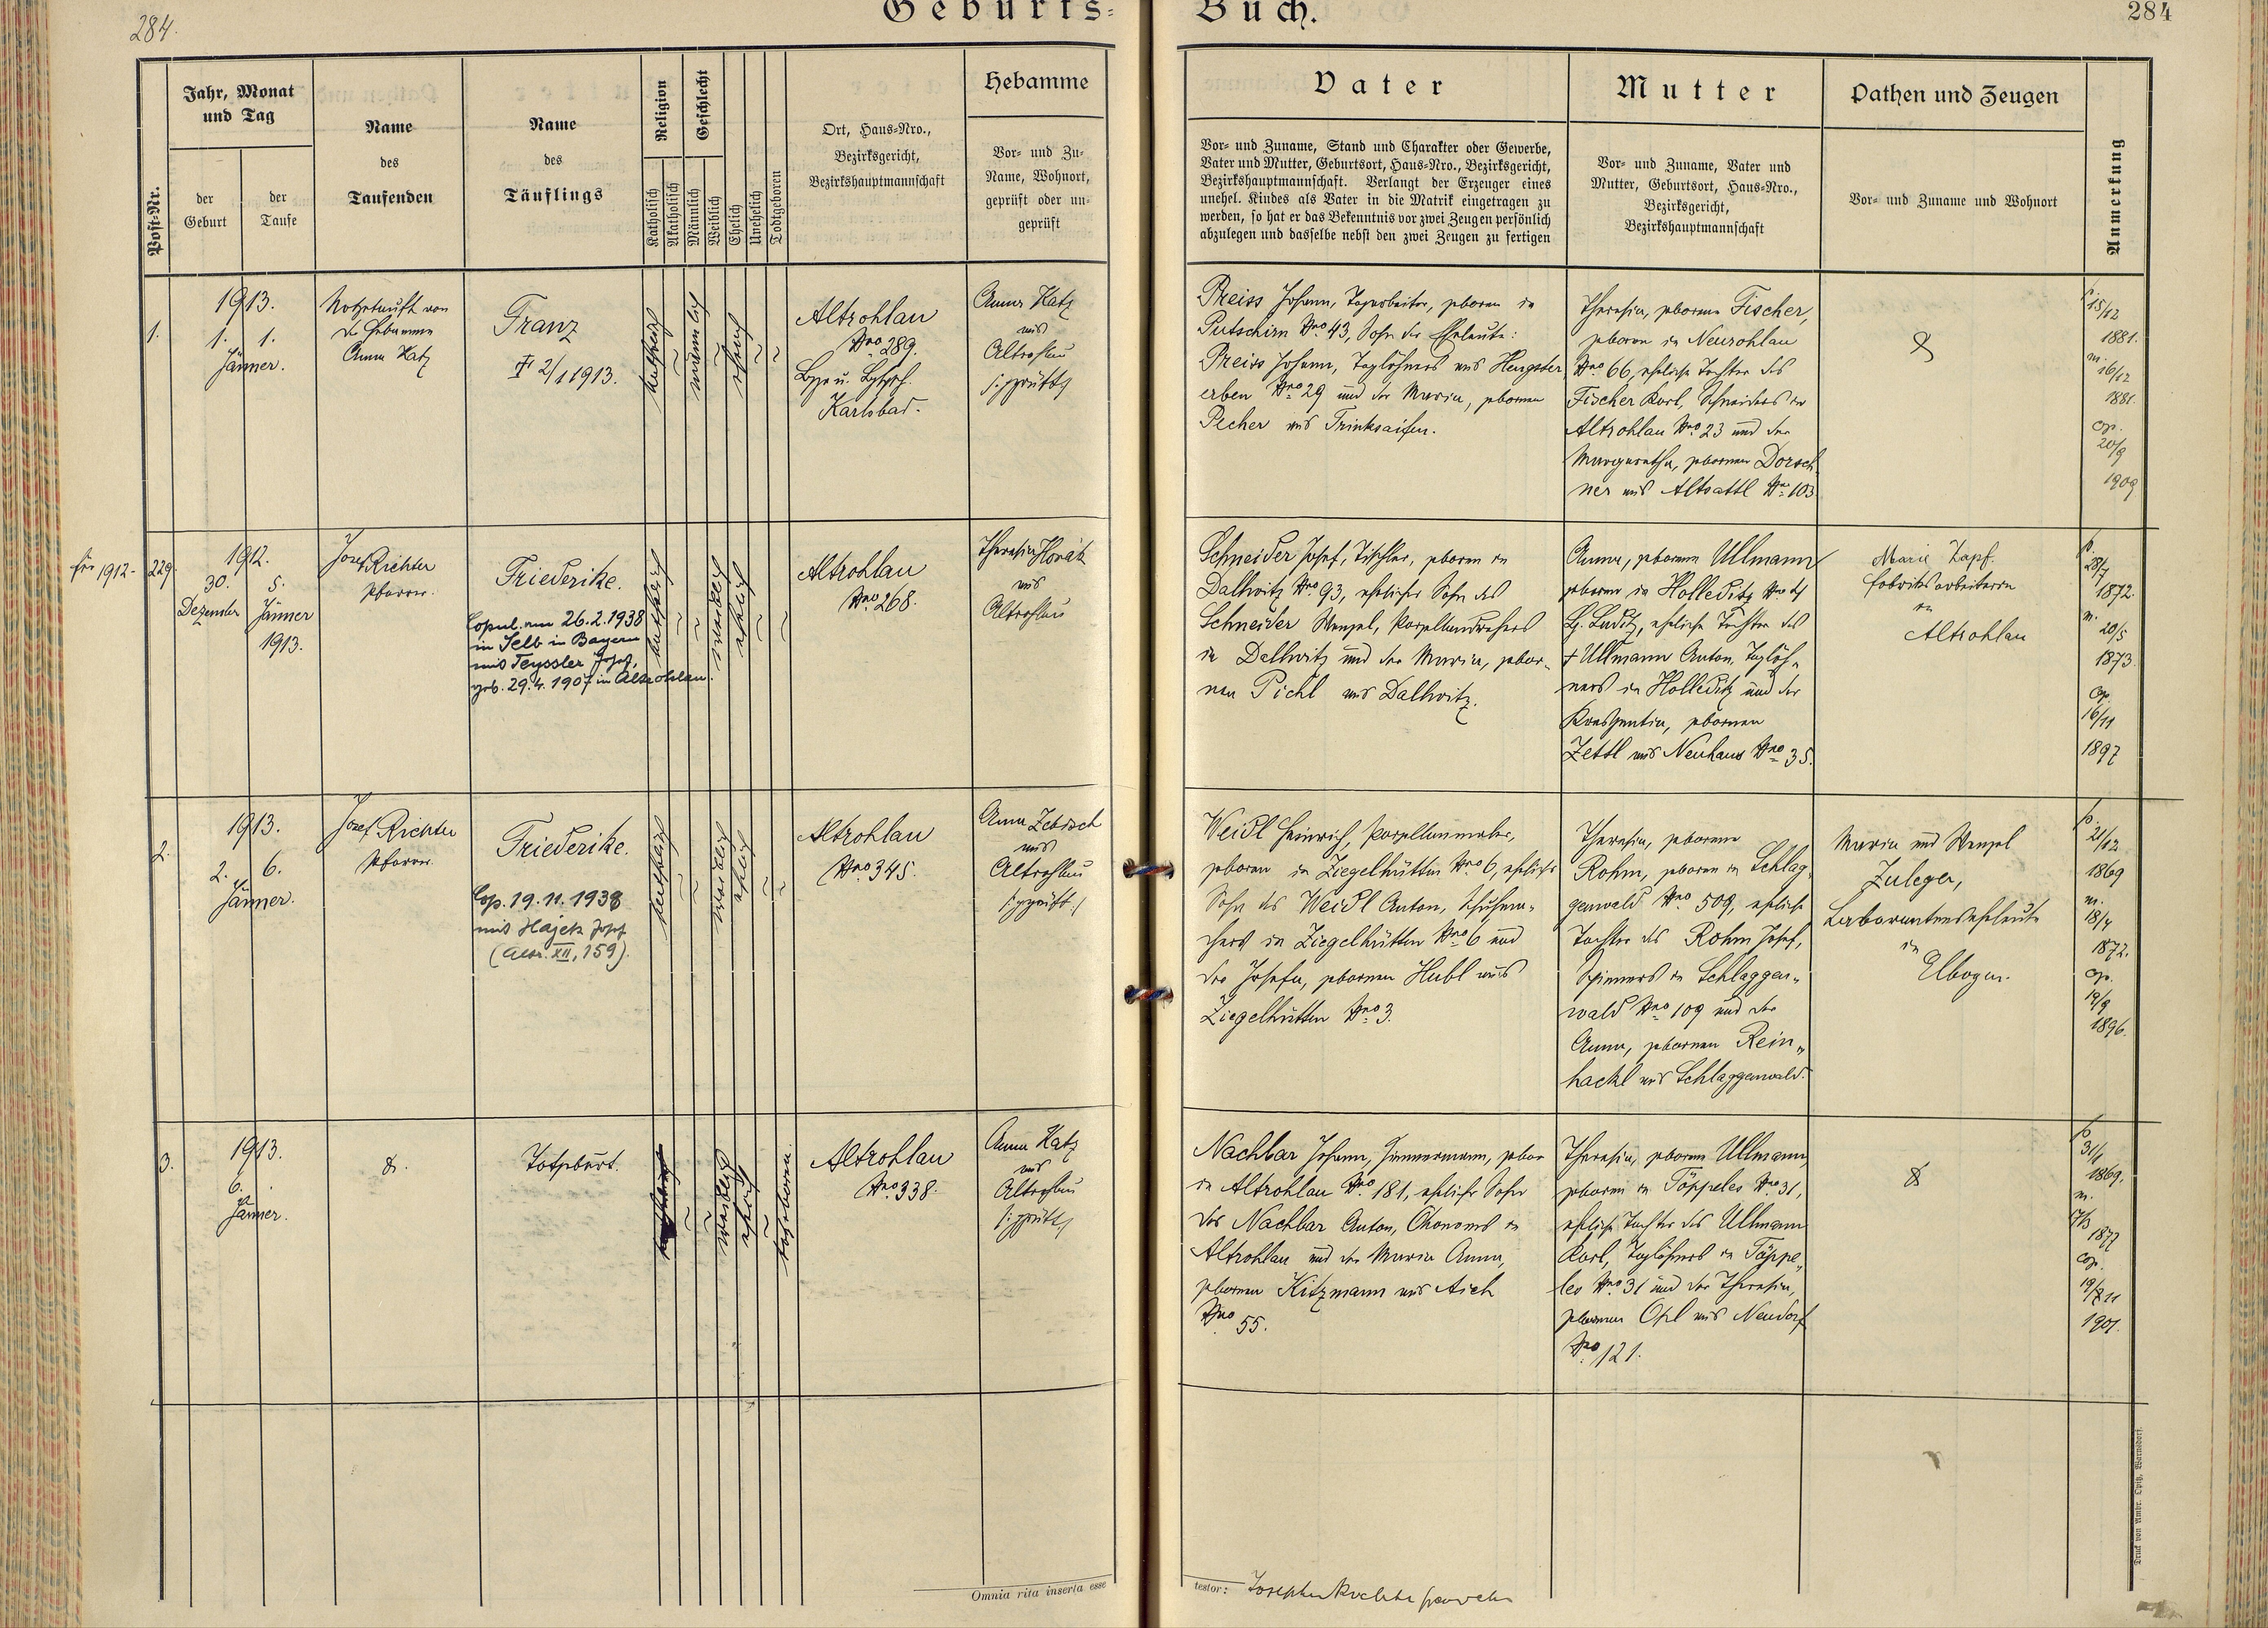 284.
Geburts-
Buch.
284
Post-Nr.
Jahr, Monat
und Tag
der
Geburt
der
Taufe
Name
des
Taufenden
Name
des
Täuflings
Religion
Katholisch
Akatholisch
Geschlecht
Männlich
Weiblich
Ehelich
Unehelich
Todtgeboren
Ort, Haus-Nro.,
Bezirksgericht,
Bezirkshauptmannschaft
Hebamme
Vor- und Zu-
Name, Wohnort,
geprüft oder un-
geprüft
Vater
Vor- und Zuname, Stand und Charakter oder Gewerbe,
Vater und Mutter, Geburtsort, Haus-Nro., Bezirksgericht,
Bezirkshauptmannschaft. Verlangt der Erzeuger eines
unehel. Kindes als Vater in die Matrik eingetragen zu
werden, so hat er das Bekenntnis vor zwei Zeugen persönlich
abzulegen und dasselbe nebst den zwei Zeugen zu fertigen
Mutter
Vor- und Zuname, Vater und
Mutter, Geburtsort, Haus-Nro.,
Bezirksgericht,
Bezirkshauptmannschaft
Pathen und Zeugen
Vor- und Zuname und Wohnort
Anmerkung
1.
1913.
1. 1.
Jänner.
Nothtauft von
der Hebamme
Anna Katz
Franz
† 2/1 1913.
katholisch
männlich
ehelich
Altrohlau
Nro 289.
Karlsbad.
Anna Katz
aus
Altrohlau
/:geprüft:/
Preiss Johann, Tagarbeiter, geboren in
Putschirn Nro 43, Sohn der Eheleute:
Preiss Johann, Taglöhners aus Hengster
erben Nro 29 und der Maria, geborenen
Pecher aus Trinksaifen.
Theresia, geborene Fischer,
geboren in Neurohlau
Nro 66, eheliche Tochter des
Fischer Karl, Schneiders in
Altrohlau Nro 23 und der
Margaretha, geborenen Dorsch
ner aus Altsattl Nro 103
15/12
1881.
m.
16/12
1881.
cop.
20/9
1909
für 1912.
229.
1912.
30. 5.
Dezember Jänner
1913.
Josef Richter
Pfarrer.
Friederike.
Copul. am 26.2.1938
in Selb in Bayern
mit Teyssler Josef,
geb. 29.4.1907 in Altrohlau.
katholisch
weiblich
ehelich
Altrohlau
Nro 268.
Theresia Horák
aus
Altrohlau
Schneider Josef, Tischler, geboren in
Dallwitz Nro 93, ehelicher Sohn des
Schneider Wenzel, Porzellandrehers
in Dallwitz und der Maria, gebor-
nen Pichl aus Dallwitz.
Anna, geborene Ullmann
geboren in Holleditz Nro 4
Bz. Luditz, eheliche Tochter des
† Ullmann Anton, Taglöh-
ners in Holleditz und der
Kreszentia, geborenen
Zettl aus Neuhaus Nro 35.
Marie Zapf.
Fabriksarbeiterin
in
Altrohlau
28/7
1872.
m.
20/5
1873.
cop.
16/11
1897
2.
1913.
2. 6.
Jänner.
Josef Richter
Pfarrer.
Friederike.
Cop. 19.11.1938
mit Hajek Josef
(Altr. XII, 159).
katholisch
weiblich
ehelich
Altrohlau
Nro 345.
Anna Zebisch
aus
Altrohlau
/:geprüft:/
Weidl Heinrich, Porzellanmaler,
geboren in Ziegelhütten Nro 6, ehelicher
Sohn des Weidl Anton, Schuhma-
chers in Ziegelhütten Nro 6 und
der Josefa, geborenen Hubl aus
Ziegelhütten Nro 3.
Theresia, geborene
Rohm, geboren in Schlag-
genwald Nro 509, eheliche
Tochter des Rohm Josef,
Spinners in Schlaggen-
wald Nro 109 und der
Anna, geborenen Rein-
hackl aus Schlaggenwald.
Maria und Wenzel
Zuleger,
Laborantenseheleute
in
Elbogen.
21/12
1869
m.
18/4
1872.
cop.
19/9
1896.
3.
1913.
6.
Jänner.
Totgeburt.
weiblich
ehelich
totgeboren.
Altrohlau
Nro 338.
Anna Katz
aus
Altrohlau
/:geprüft:/
Nachbar Johann, Zimmermann, geboren
in Altrohlau Nro 181, ehelicher Sohn
des Nachbar Anton, Ökonoms in
Altrohlau und der Maria Anna,
geborenen Kitzmann aus Aich
Nro 55.
Theresia, geborene Ullmann,
geboren in Töppeles Nro 31,
eheliche Tochter des Ullmann
Karl, Taglöhners in Töppe-
les Nro 31 und der Theresia,
geborenen Opl aus Neudorf
Nro 121.
31/1
1869.
m.
17/3
1877
cop.
1901.
Omnia rita inserta esse
testor:
Druck von Ambr. Opitz, Warnsdorf.